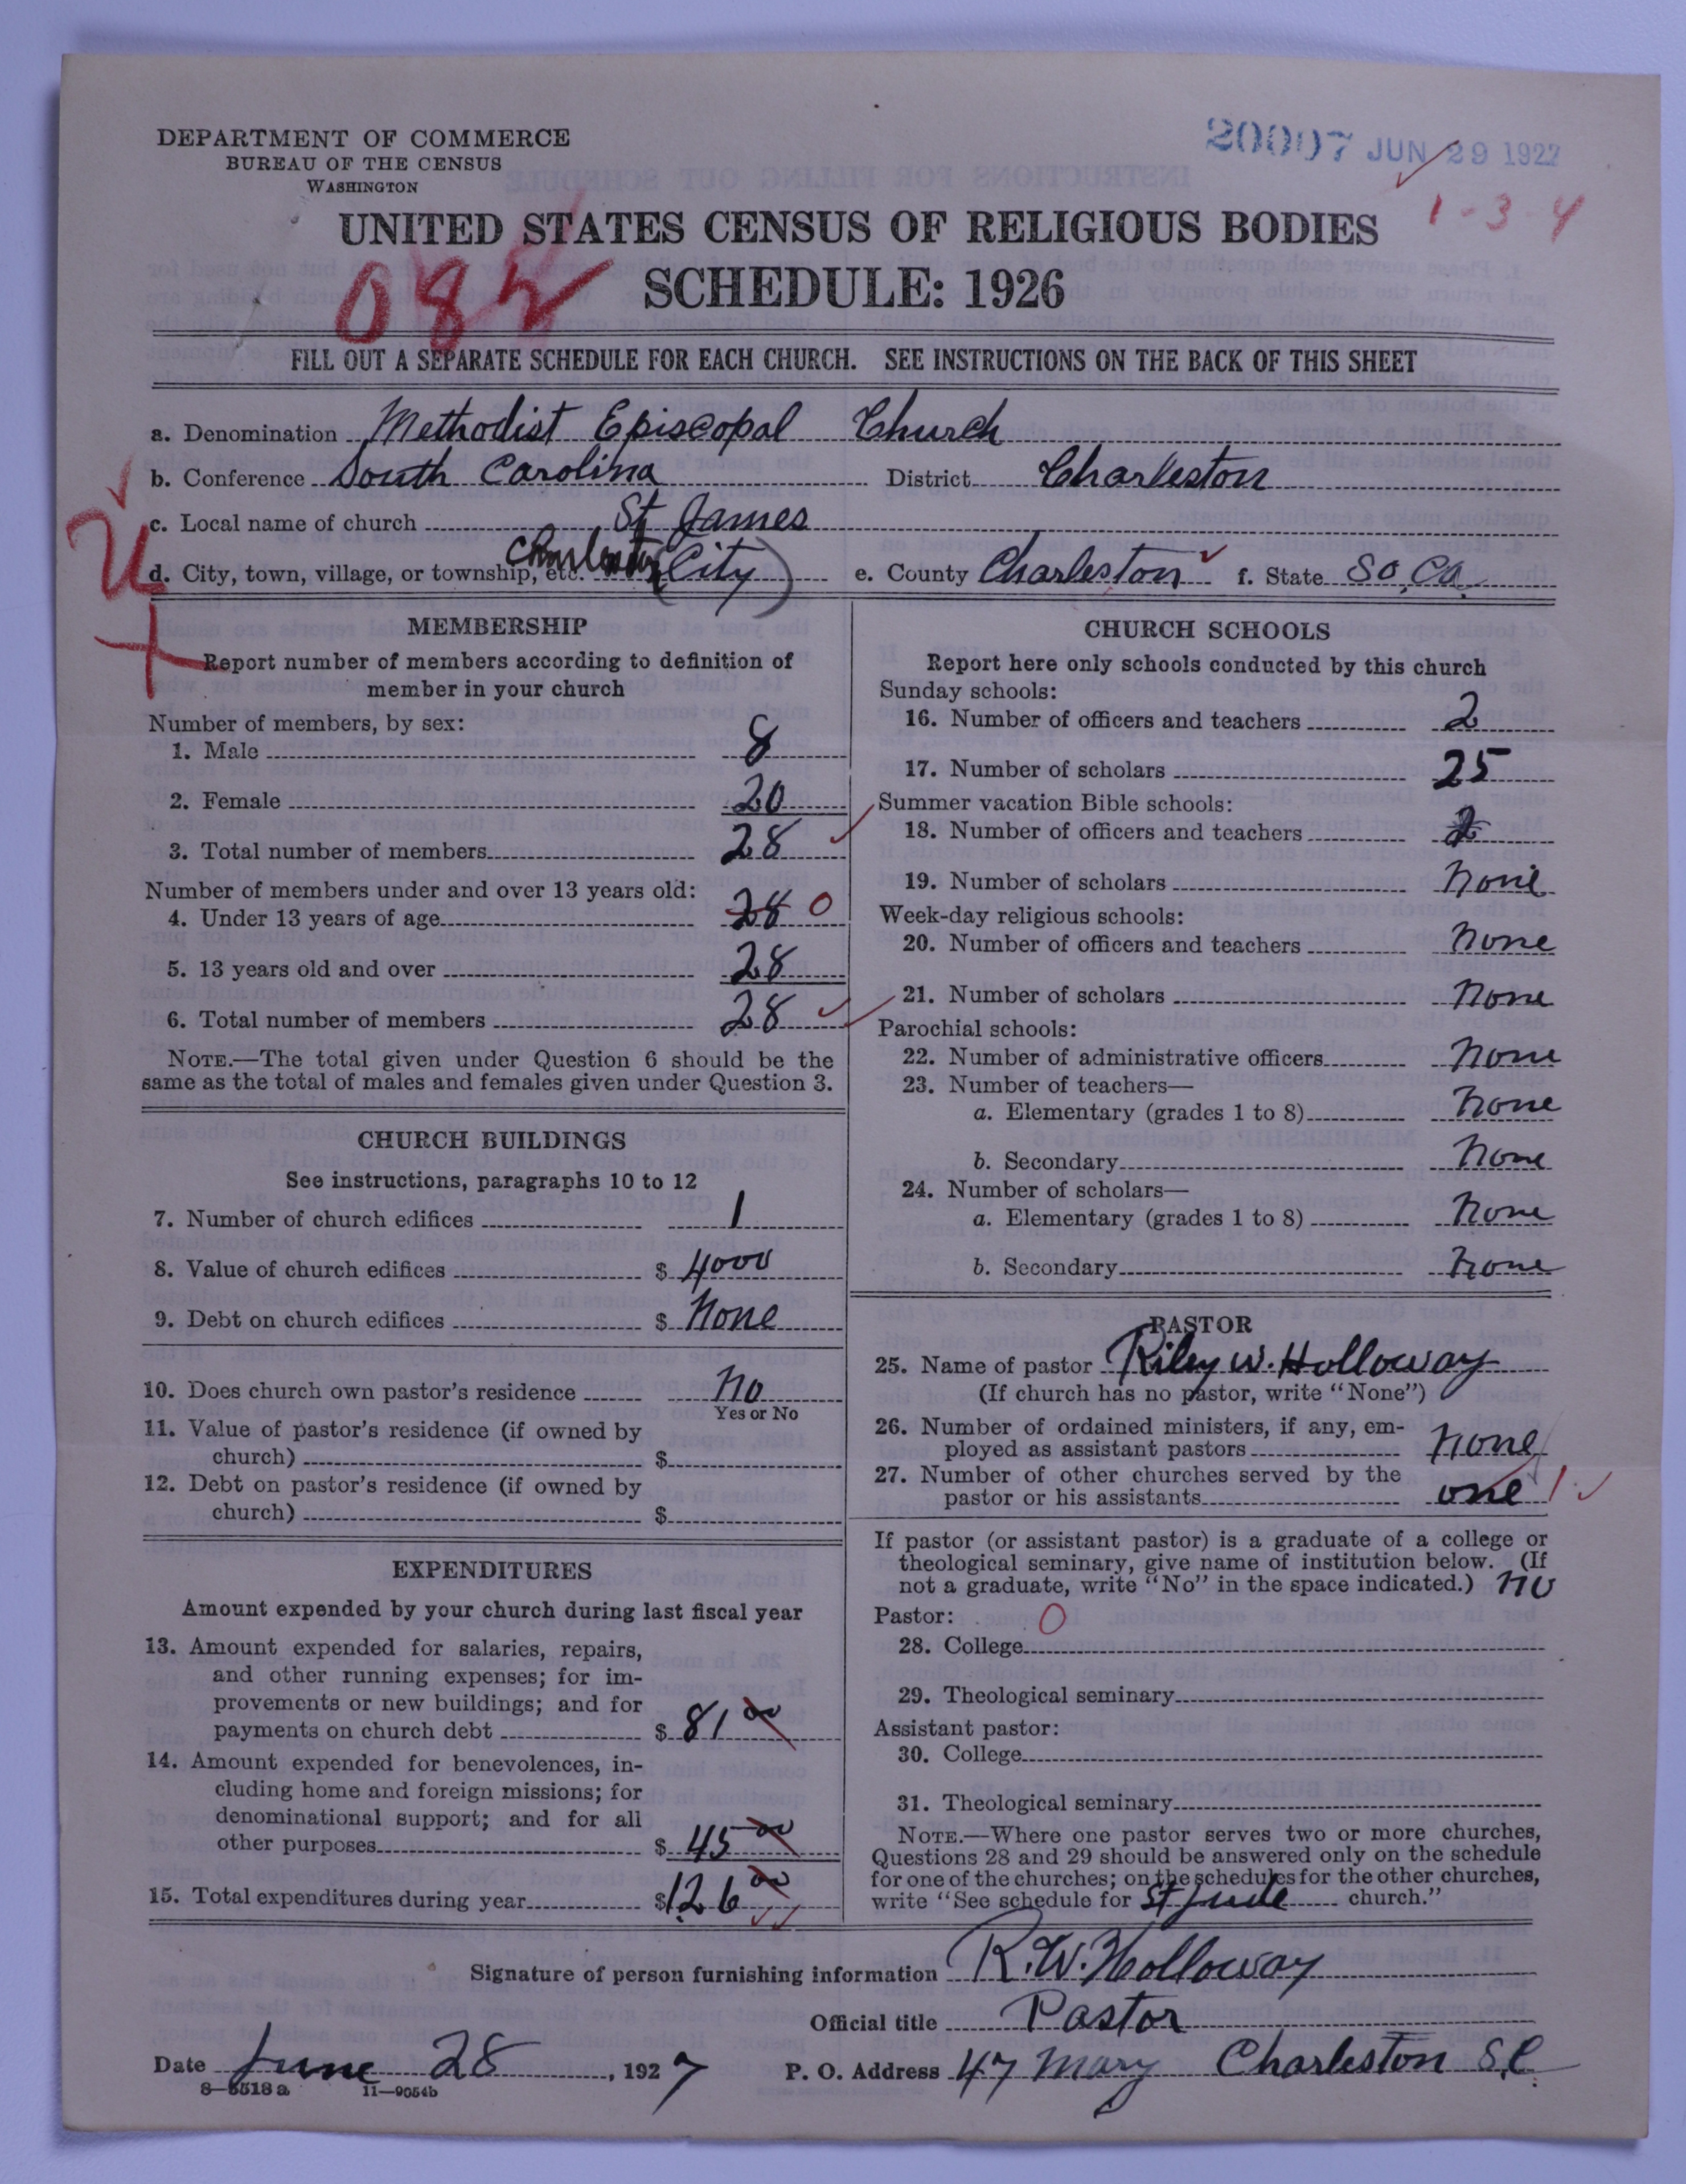 DEPARTMENT OF COMMERCE
BUREAU OF THE CENSUS
WASHINGTON
20007 JUN 29 1927
1-3-4
UNITED STATES CENSUS OF RELIGIOUS BODIES
SCHEDULE: 1926
082
FILL OUT A SEPARATE SCHEDULE FOR EACH CHURCH. SEE INSTRUCTIONS ON THE BACK OF THIS SHEET
a. Denomination Methodist Episcopal Church
b. Conference South Carolina District Charleston
c. Local name of church St James
d. City, town, village, or township, etc. Charleston (City) e. County Charleston f. State So, Ca.
U
MEMBERSHIP
Report number of members according to definition of
member in your church
Number of members, by sex:
1. Male 8
2. Female 20
3. Total number of members 28
Number of members under and over 13 years old:
4. Under 13 years of age 28 0
5. 13 years old and over 28
6. Total number of members 28
NOTE.—The total given under Question 6 should be the
same as the total of males and females given under Question 3.
CHURCH BUILDINGS
See instructions, paragraphs 10 to 12
7. Number of church edifices 1
8. Value of church edifices $ 4000
9. Debt on church edifices $ None
10. Does church own pastor's residence No
Yes or No
11. Value of pastor's residence (if owned by
church) $
12. Debt on pastor's residence (if owned by
church) $
EXPENDITURES
Amount expended by your church during last fiscal year
13. Amount expended for salaries, repairs,
and other running expenses; for im-
provements or new buildings; and for
payments on church debt $ 81 00
14. Amount expended for benevolences, in-
cluding home and foreign missions; for
denominational support; and for all
other purposes $ 45 00
15. Total expenditures during year $126 00
CHURCH SCHOOLS
Report here only schools conducted by this church
Sunday schools:
16. Number of officers and teachers 2
17. Number of scholars 25
Summer vacation Bible schools:
18. Number of officers and teachers 2
19. Number of scholars None
Week-day religious schools:
20. Number of officers and teachers None
21. Number of scholars None
Parochial schools:
22. Number of administrative officers None
23. Number of teachers—
a. Elementary (grades 1 to 8) None
b. Secondary None
24. Number of scholars—
a. Elementary (grades 1 to 8) None
b. Secondary None
PASTOR
25. Name of pastor Riley W. Holloway
(If church has no pastor, write "None")
26. Number of ordained ministers, if any, em-
ployed as assistant pastors none
27. Number of other churches served by the
pastor or his assistants one 1
If pastor (or assistant pastor) is a graduate of a college or
theological seminary, give name of institution below. (If
not a graduate, write "No" in the space indicated.) no
Pastor: 0
28. College
29. Theological seminary
Assistant pastor:
30. College
31. Theological seminary
NOTE.—Where one pastor serves two or more churches,
Questions 28 and 29 should be answered only on the schedule
for one of the churches; on the schedules for the other churches,
write "See schedule for St Jude church."
Signature of person furnishing information R. W. Holloway
Official title Pastor
Date June 28, 1927 P. O. Address 47 Mary Charleston S.C.
8-8518 a 11-9054b